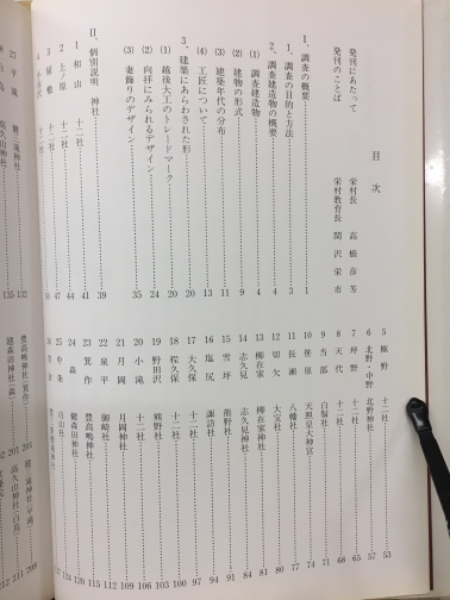 目次
発刊にあたって 栄村長 高橋彦芳
発刊のことば 栄村教育長 関沢栄市
I、調査の概要 1
1、調査の目的と方法 3
2、調査建造物の概要 4
(1) 調査建造物 4
(2) 建物の形式 9
(3) 建築年代の分布 11
(4) 工匠について 13
3、建築にあらわされた形 20
(1) 越後大工のトレードマーク 20
(2) 向拝にみられるデザイン 24
(3) 妻飾りのデザイン 35
II、個別説明 神社 39
1 和山 十二社 41
2 上ノ原 十二社 44
3 屋敷 十二社 47
4 小赤沢 十二社 50
5 極野 十二社 53
6 北野・中野 北野神社 57
7 坪野 十二社 65
8 天代 十二社 68
9 当部 白髯社 71
10 笹原 天照皇大神宮 74
11 長瀬 八幡社 77
12 切欠 大宝社 80
13 柳在家 柳在家神社 81
14 志久見 志久見神社 84
15 雪坪 熊野社 91
16 塩尻 諏訪社 94
17 大久保 十二社 97
18 程久保 十二社 100
19 野田沢 熊野社 103
20 小滝 十二社 106
21 月岡 月岡神社 109
22 泉平 御崎社 112
23 箕作 豊高嶋神社 115
24 森 健森田神社 120
25 中条 白山社 124
27 平滝 132
135
豊高嶋神社(箕作) 201
健森田神社(森) 202
高久山神社(白鳥)
208
209
211
212